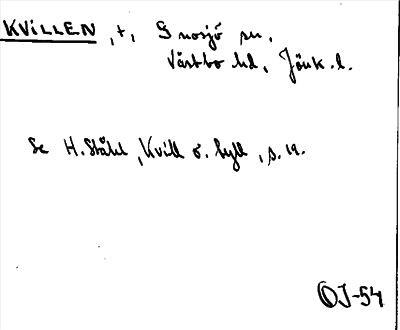 KVILLEN, t, Gnosjö sn.
Västbo hd, Jönk. l.
Se H. Ståhl, Kvill o. hyll, s. 19.
OJ-54